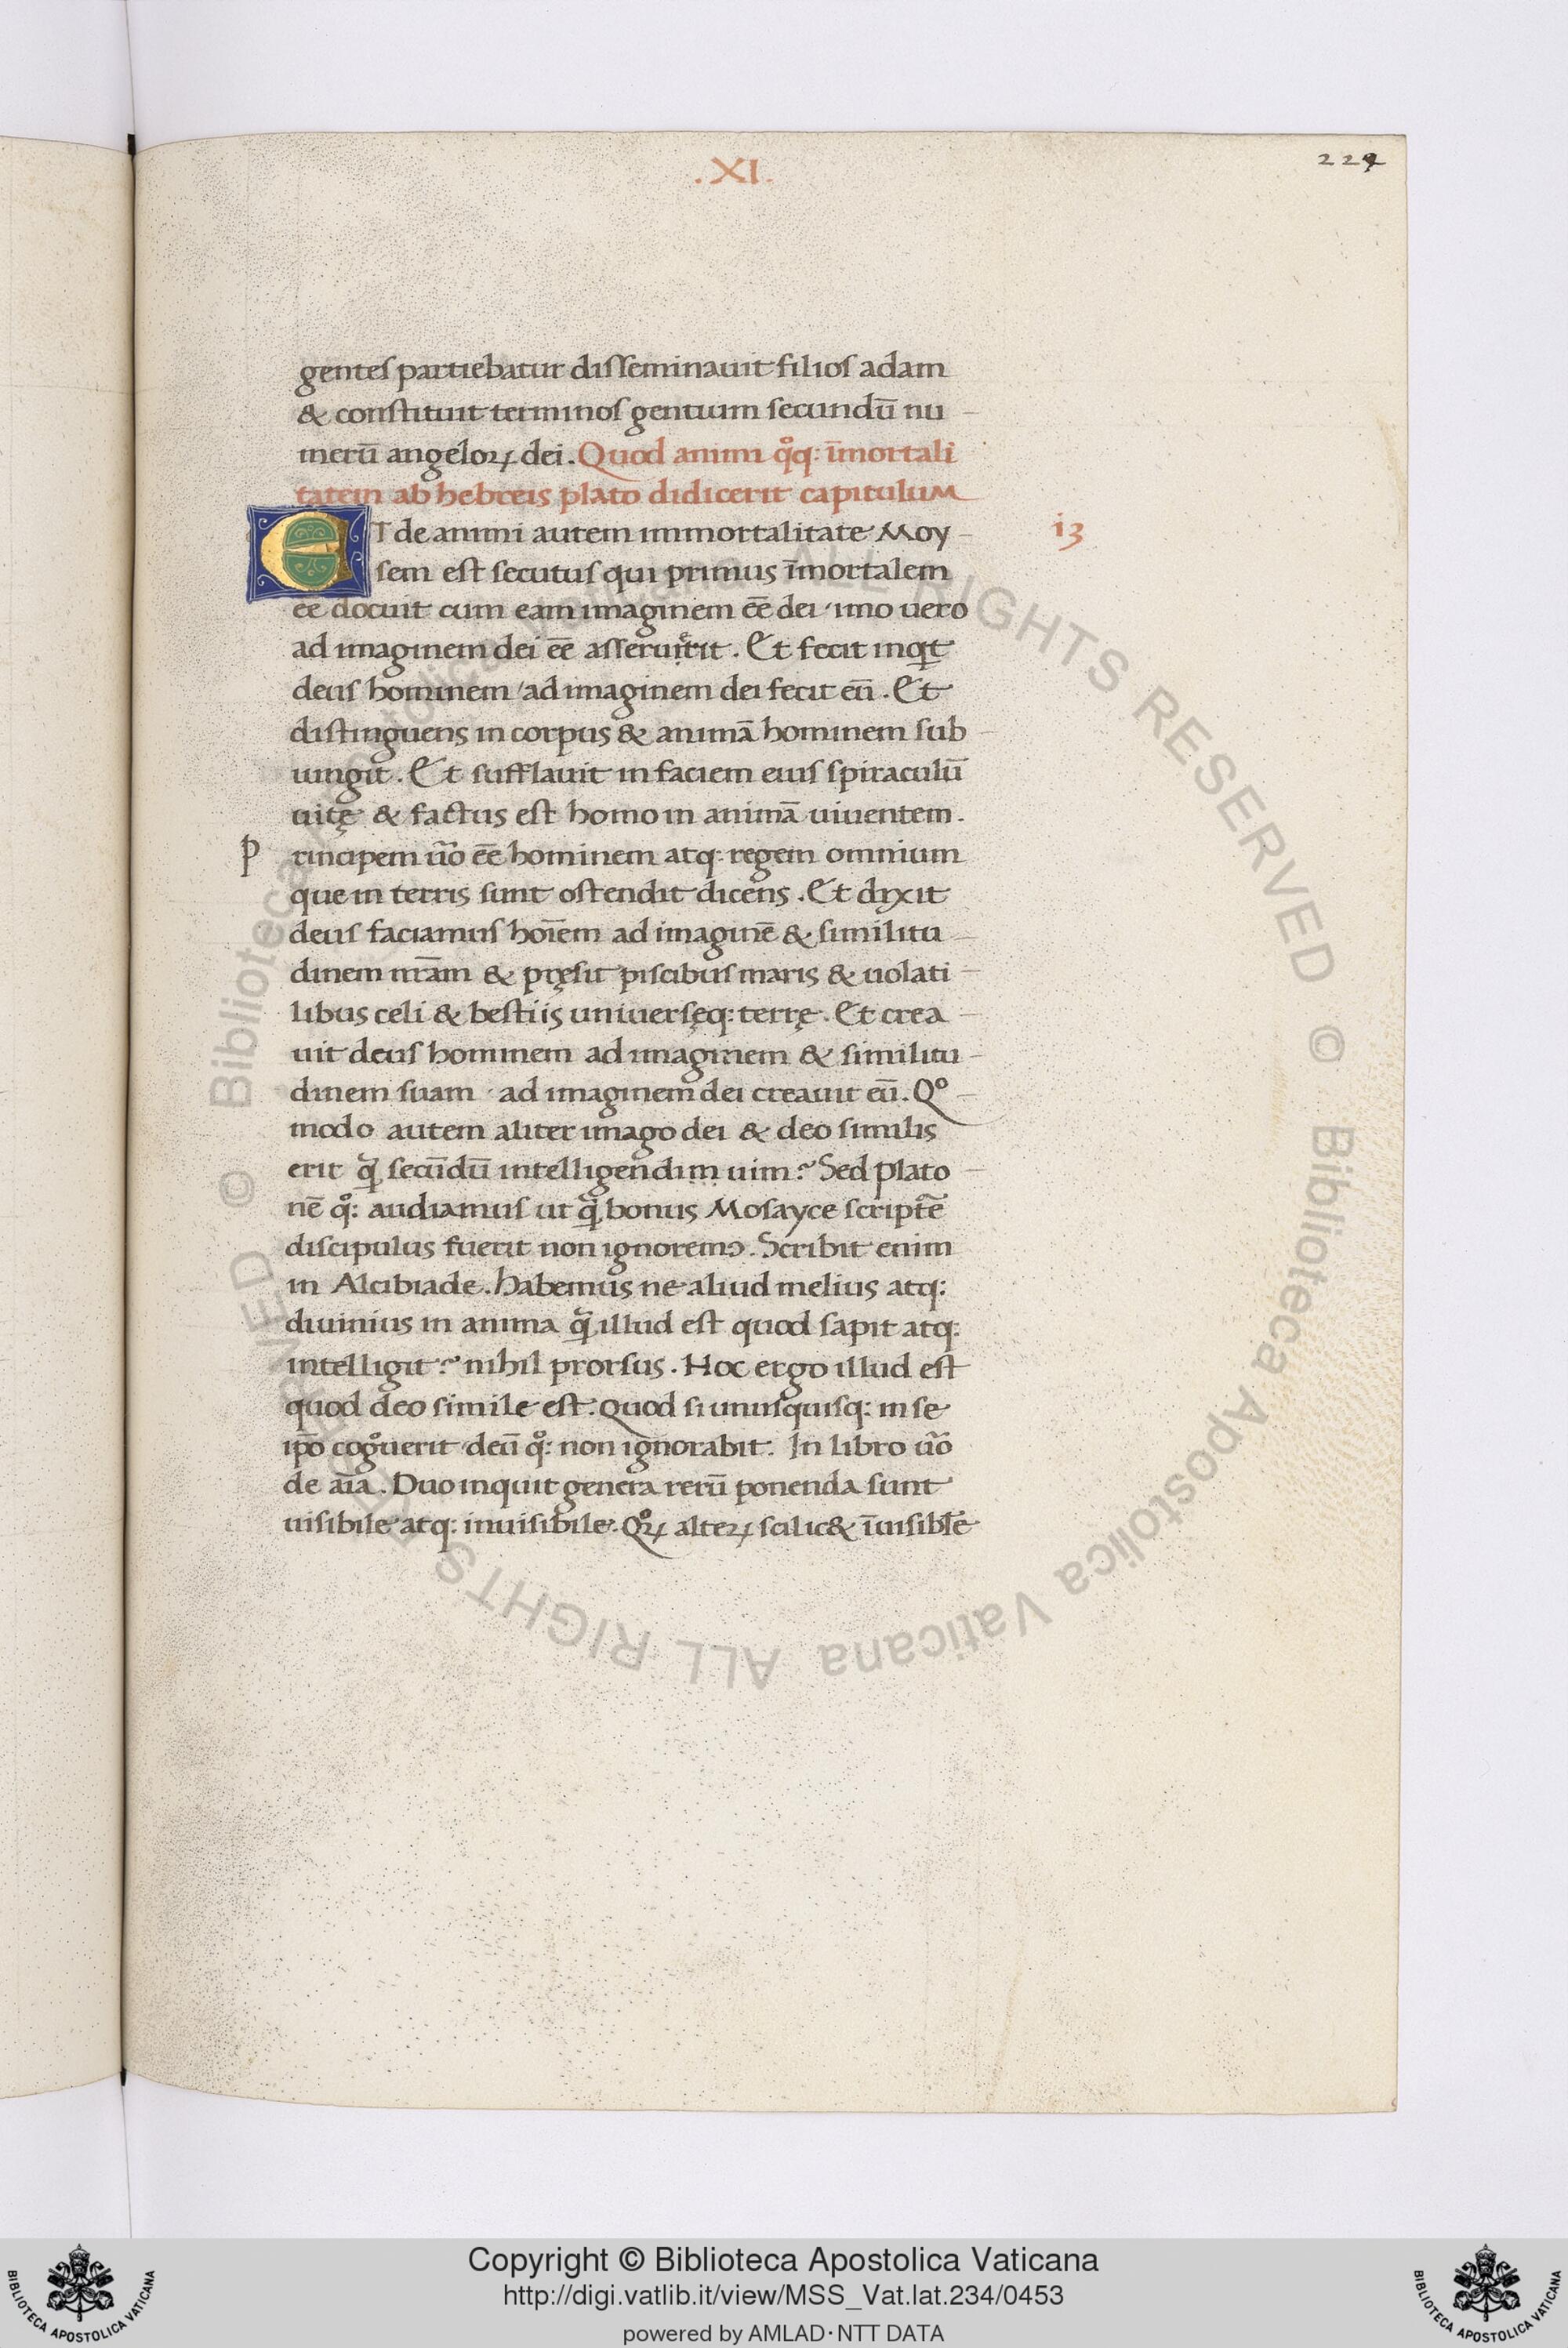 .XI.
224
gentes partiebatur disseminauit filios adam
& constituit terminos gentium secundū nu
merū angeloꝝ dei. Quod animi q̊q: īmortali
tatem ab hebreis plato didicerit capitulum
ET de animi autem immortalitate Moy
i3
sem est secutus qui primus īmortalem
eē docuit cum eam imaginem eē dei imo uero
ad imaginem dei eē asseruerit. Et fecit inqͥt
deus hominem ad imaginem dei fecit eū. Et
distinguens in corpus & animā hominem sub
iungit. Et sufflauit in faciem eius spiraculū
uitę & factus est homo in animā uiuentem.
Principem ūo eē hominem atq: regem omnium
que in terris sunt ostendit dicens. Et dixit
deus faciamus hoīem ad imaginē & similitu
dinem nr̄am & pręsit piscibus maris & uolati
libus celi & bestiis uniuersęq: terrę. Et crea
uit deus hominem ad imaginem & similitu
dinem suam ad imaginem dei creauit eū. Qº
modo autem aliter imago dei & deo similis
erit qᷓ secūdū intelligendim uim? Sed plato
nē q̊: audiamus ut qᷓ bonus Mosayce scriptē
discipulus fuerit non ignoremꝯ. Scribit enim
in Alcibiade. habemus ne aliud melius atq:
diuinius in anima qᷓ illud est quod sapit atq:
intelligit? nihil prorsus. Hoc ergo illud est
quod deo simile est. Quod si unusquisq: in se
ip̄o cog̊uerit deū q̊: non ignorabit. In libro ūo
de aīa. Duo inquit genera rerū ponenda sunt
uisibile atq: inuisibile. Qͦꝝ alteꝝ scilic& īuisibl̄e
© Biblioteca Apostolica Vaticana ALL RIGHTS RESERVED © Biblioteca Apostolica Vaticana ALL RIGHTS RESERVED
Copyright © Biblioteca Apostolica Vaticana
http://digi.vatlib.it/view/MSS_Vat.lat.234/0453
powered by AMLAD·NTT DATA
BIBLIOTECA APOSTOLICA VATICANA
BIBLIOTECA APOSTOLICA VATICANA